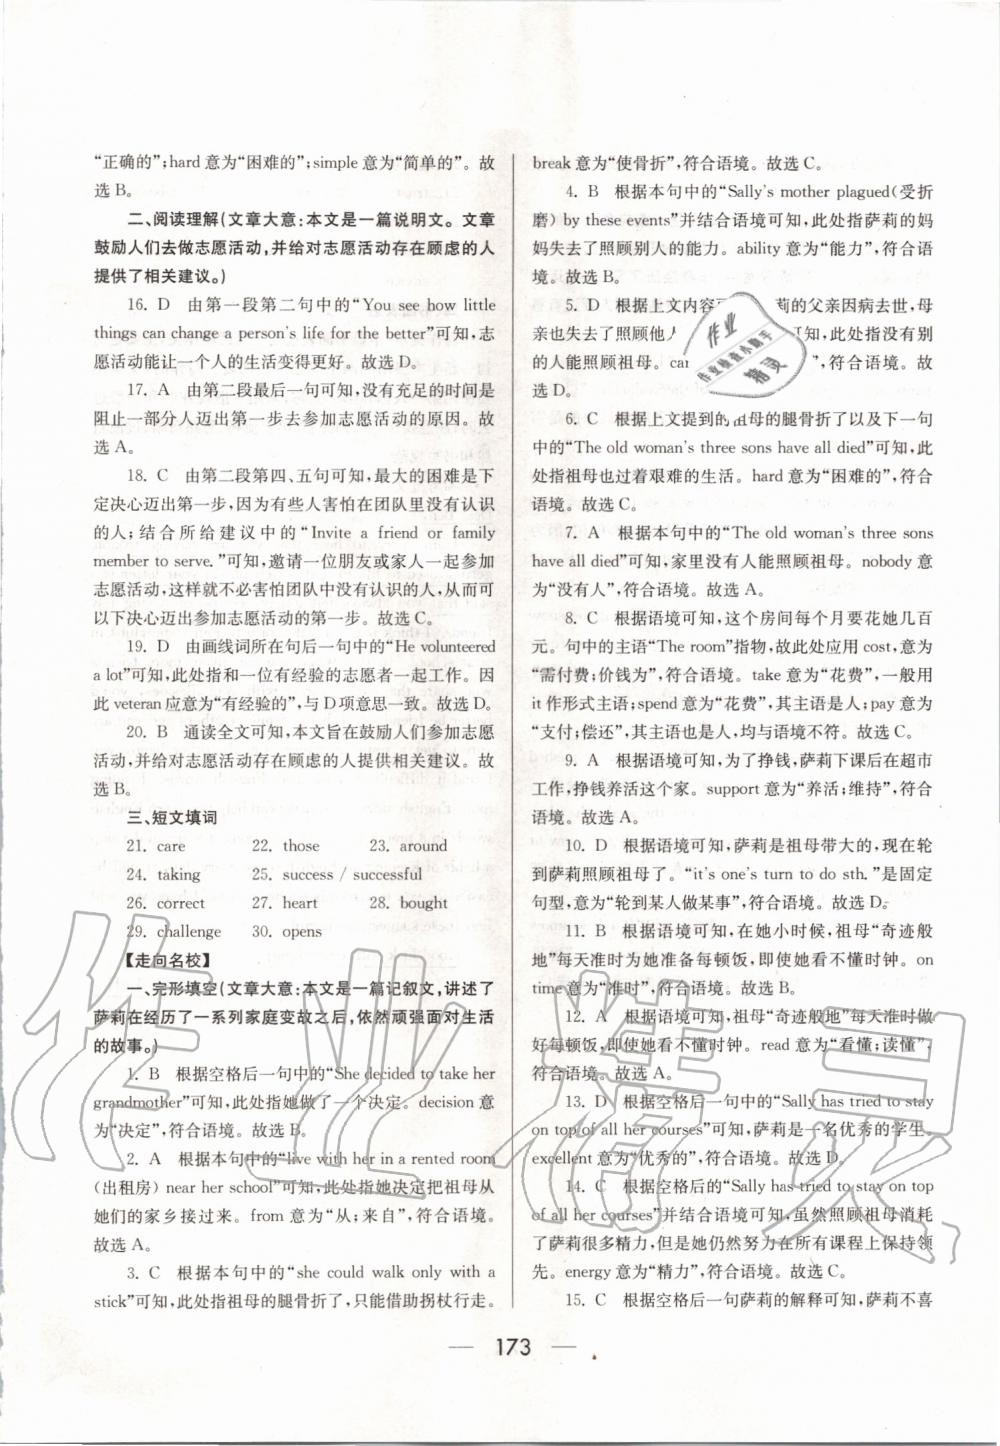 “正确的”;hard 意为“困难的”;simple 意为“简单的”。故
选 B。
二、阅读理解(文章大意:本文是一篇说明文。文章
鼓励人们去做志愿活动,并给对志愿活动存在顾虑的人
提供了相关建议。)
16. D 由第一段第二句中的“You see how little
things can change a person's life for the better”可知,志
愿活动能让一个人的生活变得更好。故选 D。
17. A 由第二段最后一句可知,没有充足的时间是
阻止一部分人迈出第一步去参加志愿活动的原因。故
选 A。
18. C 由第二段第四、五句可知,最大的困难是下
定决心迈出第一步,因为有些人害怕在团队里没有认识
的人;结合所给建议中的“Invite a friend or family
member to serve.”可知,邀请一位朋友或家人一起参加
志愿活动,这样就不必害怕团队中没有认识的人,从而可
以下决心迈出参加志愿活动的第一步。故选 C。
19. D 由画线词所在句后一句中的“He volunteered
a lot”可知,此处指和一位有经验的志愿者一起工作。因
此 veteran 应意为“有经验的”,与 D 项意思一致。故选 D。
20. B 通读全文可知,本文旨在鼓励人们参加志愿
活动,并给对志愿活动存在顾虑的人提供相关建议。故
选 B。
三、短文填词
21. care 22. those 23. around
24. taking 25. success / successful
26. correct 27. heart 28. bought
29. challenge 30. opens
【走向名校】
一、完形填空(文章大意:本文是一篇记叙文,讲述了
萨莉在经历了一系列家庭变故之后,依然顽强面对生活
的故事。)
1. B 根据空格后一句中的“She decided to take her
grandmother”可知,此处指她做了一个决定。decision 意
为“决定”,符合语境。故选 B。
2. A 根据本句中的“live with her in a rented room
(出租房) near her school”可知,此处指她决定把祖母从
她们的家乡接过来。from 意为“从;来自”,符合语境。
故选 A。
3. C 根据本句中的“she could walk only with a
stick”可知,此处指祖母的腿骨折了,只能借助拐杖行走。
break 意为“使骨折”,符合语境。故选 C。
4. B 根据本句中的“Sally's mother plagued(受折
磨) by these events”并结合语境可知,此处指萨莉的妈
妈失去了照顾别人的能力。ability 意为“能力”,符合语
境。故选 B。
5. D 根据上文内容可 莉的父亲因病去世,母
亲也失去了照顾他人 可知,此处指没有别
的人能照顾祖母。car ”,符合语境。故
选 D。
6. C 根据上文提到的祖母的腿骨折了以及下一句
中的“The old woman's three sons have all died”可知,此
处指祖母也过着艰难的生活。hard 意为“困难的”,符合
语境。故选 C。
7. A 根据本句中的“The old woman's three sons
have all died”可知,家里没有人能照顾祖母。nobody 意
为“没有人”,符合语境。故选 A。
8. C 根据语境可知,这个房间每个月要花她几百
元。句中的主语“The room”指物,故此处应用 cost,意为
“需付费;价钱为”,符合语境。take 意为“花费”,一般用
it 作形式主语;spend 意为“花费”,其主语是人;pay 意为
“支付;偿还”,其主语也是人,均与语境不符。故选 C。
9. A 根据语境可知,为了挣钱,萨莉下课后在超市
工作,挣钱养活这个家。support 意为“养活;维持”,符合
语境。故选 A。
10. D 根据语境可知,萨莉是祖母带大的,现在轮
到萨莉照顾祖母了。“it's one's turn to do sth.”是固定
句型,意为“轮到某人做某事”,符合语境。故选 D。
11. B 根据语境可知,在她小时候,祖母“奇迹般
地”每天准时为她准备每顿饭,即使她看不懂时钟。on
time 意为“准时”,符合语境。故选 B。
12. A 根据语境可知,祖母“奇迹般地”每天准时做
好每顿饭,即使她看不懂时钟。read 意为“看懂;读懂”,
符合语境。故选 A。
13. D 根据空格后一句中的“Sally has tried to stay
on top of all her courses”可知,萨莉是一名优秀的学生。
excellent 意为“优秀的”,符合语境。故选 D。
14. C 根据空格后的“Sally has tried to stay on top
of all her courses”并结合语境可知,虽然照顾祖母消耗
了萨莉很多精力,但是她仍然努力在所有课程上保持领
先。energy 意为“精力”,符合语境。故选 C。
15. C 根据空格后一句萨莉的解释可知,萨莉不喜
173
作业
作业检查小助手
精灵
作业精灵